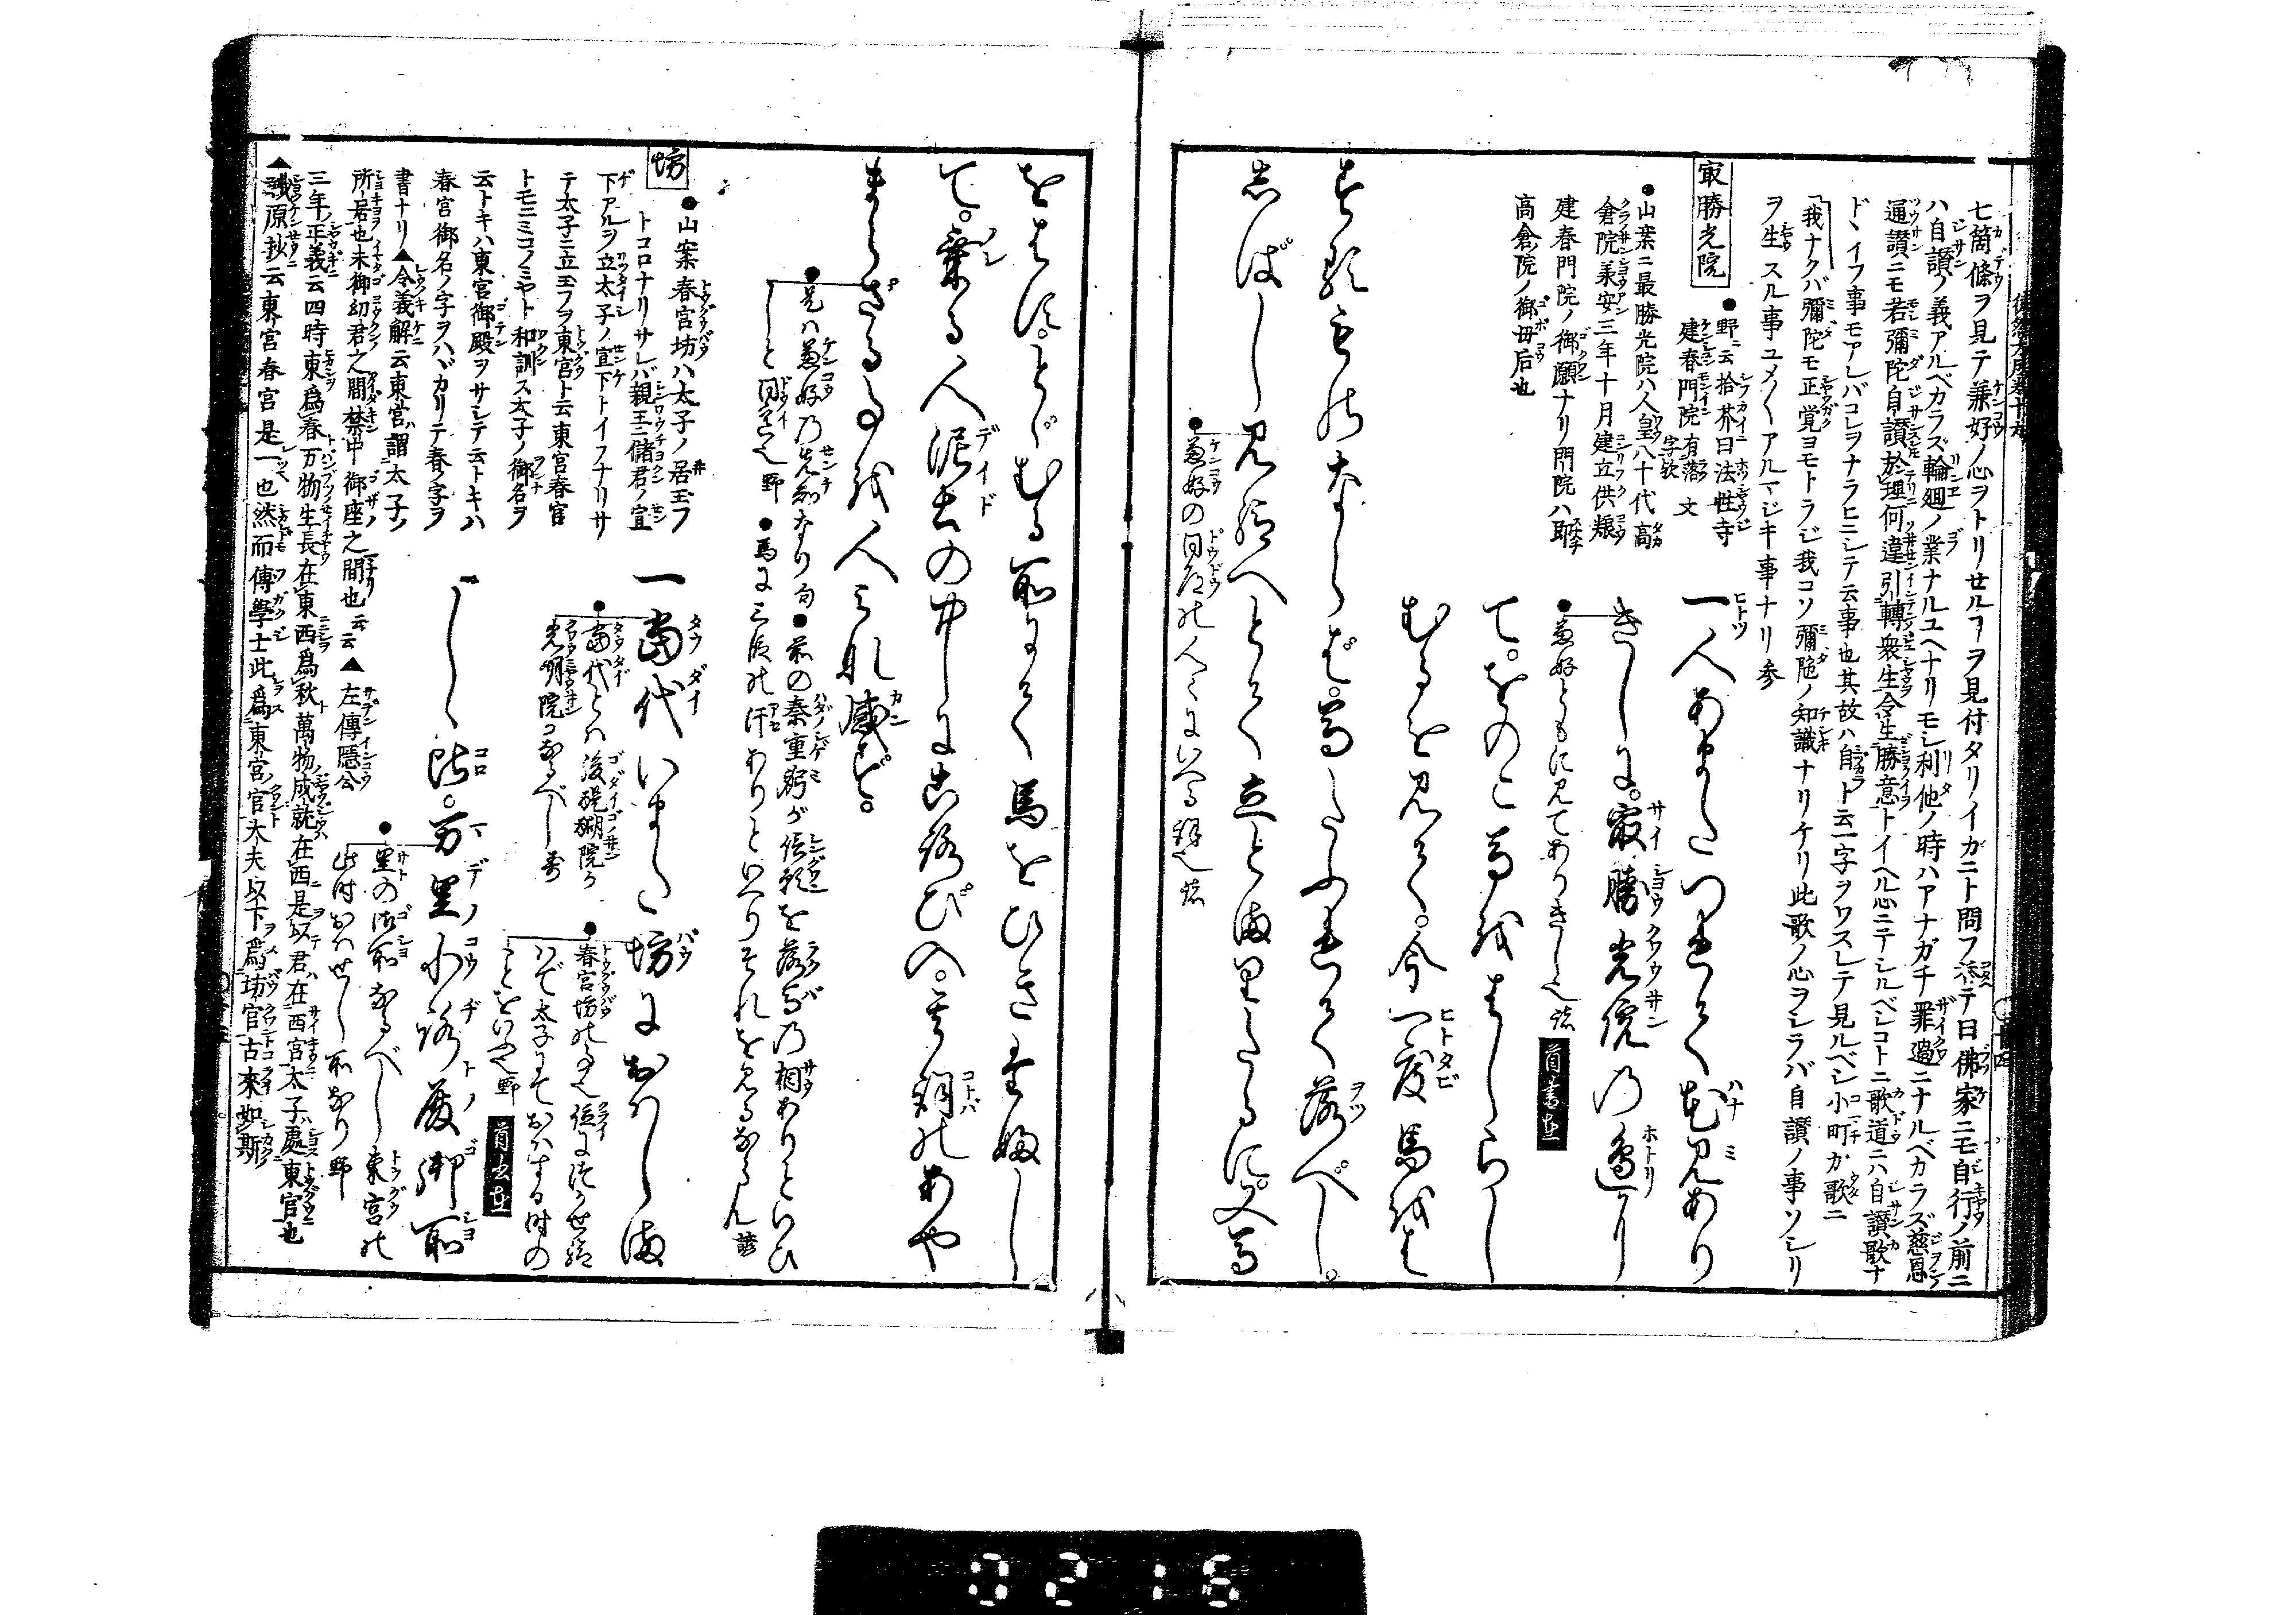 七箇條ヲ見テ兼好ノ心ヲトリせルヿヲ見付タリイカニト問フ添テ曰佛家ニモ自行ノ前ニ
ハ自讃ノ義アルベカラズ輪廻ノ業ナルユヘナリモシ利他ノ時ハアナガチ罪過ニナルベカラズ慈恩
通讃ニモ若彌陀自讃於理何違引轉衆生令生勝意トイヘル心ニテシルベシコトニ歌道ニハ自讃歌ナ
ドヽイフ事モアレバコレヲナラヒニシテ云事也其故ハ自ト云一字ヲワスレテ見ルベシ小町が歌ニ
我ナクバ彌陀モ正覚ヨモトラジ我コソ彌陀ノ知識ナリケリ此歌ノ心ヲシラバ自讃ノ事ソシリ
ヲ生スル事ユメ〱アルマジキ事ナリ 参
㝡勝光院
●野ニ云拾芥曰法性寺
建春門院有落字欤 文
●山案ニ最勝光院ハ人皇八十代高
倉院義安三年十月建立供粮
建春門院ノ御願ナリ門院ハ
高倉院ノ御母后也
一人あまたつれて花見あり
きしに。㝡勝光院の邊り
●兼好ともに見てありきし也 首書在
て。をのこ馬をはしらし
むるを見て。今一度馬をは
する物ならば。馬たふれて落べし。
しばし見給へとて立とまりたるに。又馬
●兼好の同道の人々にいへる詞也
をはす。とゞむる所にて馬をひきたふし
て。乗る人泥土の中にころび入。其詞のあや
まらざる事を人みな感ず。
●是ハ兼好の先知なり句 ●前の秦重躬が信願を落馬の相ありといひ
しと同意也 野 ●馬に三段の汗ありといへりそれを見るならん 諺
一當代いまだ坊におはしま
●當代とハ後醍醐院か
光明院コなるべし 寿
●春宮坊の事也 位につかせ給
ハで太子にておハする時の
ことをいふ也 野 首書在
しゝ比。万里小路殿御所
●里の御所なるべし東宮の
此時おハせし所なり 野
坊
●山案春宮坊ハ太子ノ居玉フ
トコロナリサレバ親王ニ儲君ノ宣
下アルヲ立太子ノ宣下トイフナリサ
テ太子ニ立玉フヲ東宮ト云東宮春宮
トモニミコノミヤト和訓ス太子ノ御名ヲ
云トキハ東宮御殿ヲサシテ云トキハ
春宮御名ノ字ヲハヾカリテ春ノ字ヲ
書ナリ▲令義解云東宮謂太子ノ
所居也未御幼君之間禁中御座之間也云云▲左傳隠公
三年正義云四時東爲春万物生長在東西爲秋萬物成就在西是以君在西宮太子處東宮也
▲原抄云東宮春宮是一也然而傳學士此爲東宮官大夫以下爲坊官古來如斯